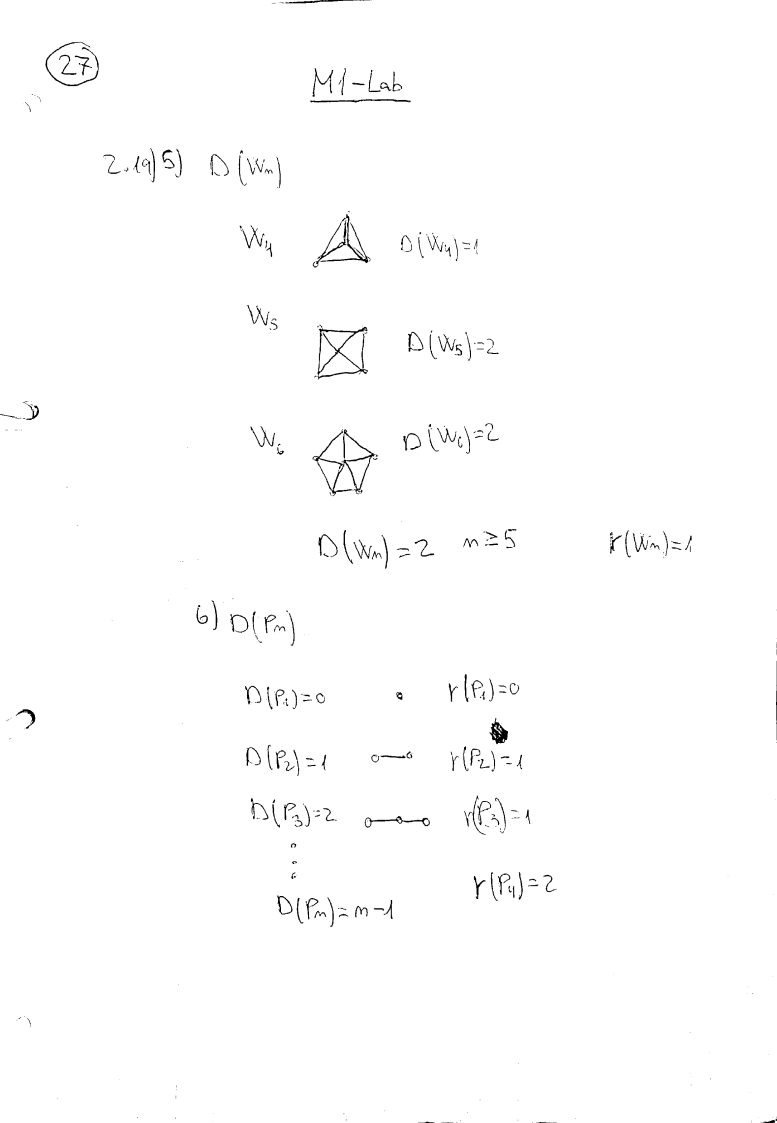 27
M1-Lab
2.19) 5) D(Wn)
W4 D(W4)=1
W5 D(W5)=2
W6 D(W6)=2
D(Wn)=2 n≥5 r(Wn)=1
6) D(Pn)
D(P1)=0 r(P1)=0
D(P2)=1 r(P2)=1
D(P3)=2 r(P3)=1
r(P4)=2
D(Pn)=n-1